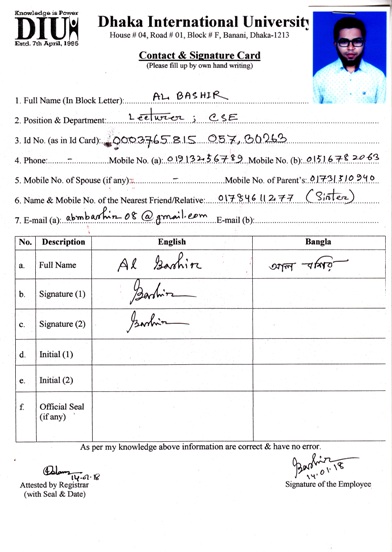 Knowledge is Power
DIU
Estd. 7th April, 1995
Dhaka International University
House # 04, Road # 01, Block # F, Banani, Dhaka-1213
Contact & Signature Card
(Please fill up by own hand writing)
1. Full Name (In Block Letter): AL BASHIR
2. Position & Department: Lecturer ; CSE
3. Id No. (as in Id Card): 0003765815 057,30263
4. Phone: - Mobile No. (a): 01913256789 Mobile No. (b): 01516782063
5. Mobile No. of Spouse (if any): - Mobile No. of Parent's: 01731510940
6. Name & Mobile No. of the Nearest Friend/Relative: 01734611277 (Sister)
7. E-mail (a): abmbashir08@gmail.com E-mail (b):
No. Description English Bangla
a. Full Name Al Bashir আল বশির
b. Signature (1) Bashir
c. Signature (2) Bashir
d. Initial (1)
e. Initial (2)
f. Official Seal (if any)
As per my knowledge above information are correct & have no error.
14-01-18
Attested by Registrar
(with Seal & Date)
Bashir
14-01-18
Signature of the Employee